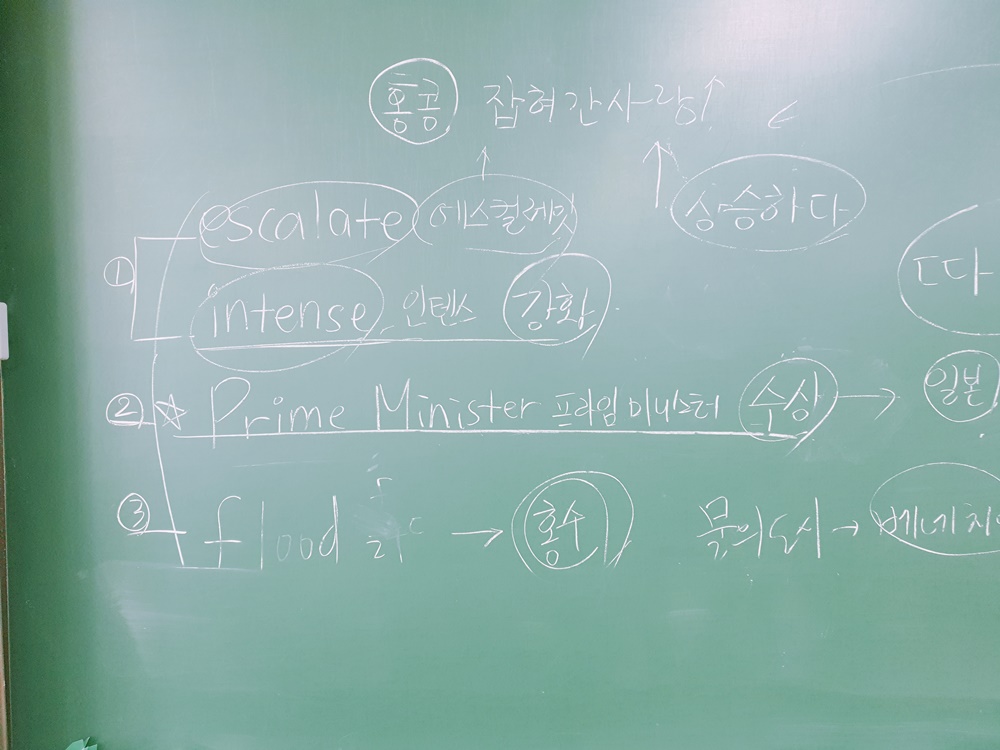 홍콩 잡혀간사람↑
escalate 에스컬레잇 상승하다
① intense 인텐스 강화
따
② ☆ Prime Minister 프라임 미니스터 수상 → 일본
③ flood → 홍수 물의도시 → 베네치